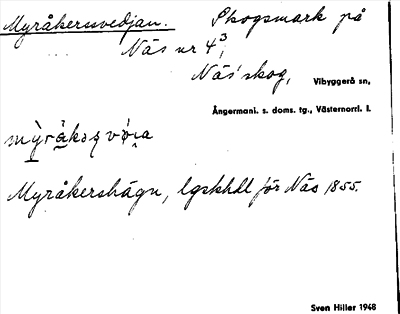 Myråkersvedjan. Skogsmark på
Näs nr 4³,
Näs' skog, Vibyggerå sn,
Ångermanl. s. doms. tg., Västernorrl. l.
Myråkershägn, lgskhdl för Näs 1855.
Sven Hiller 1948